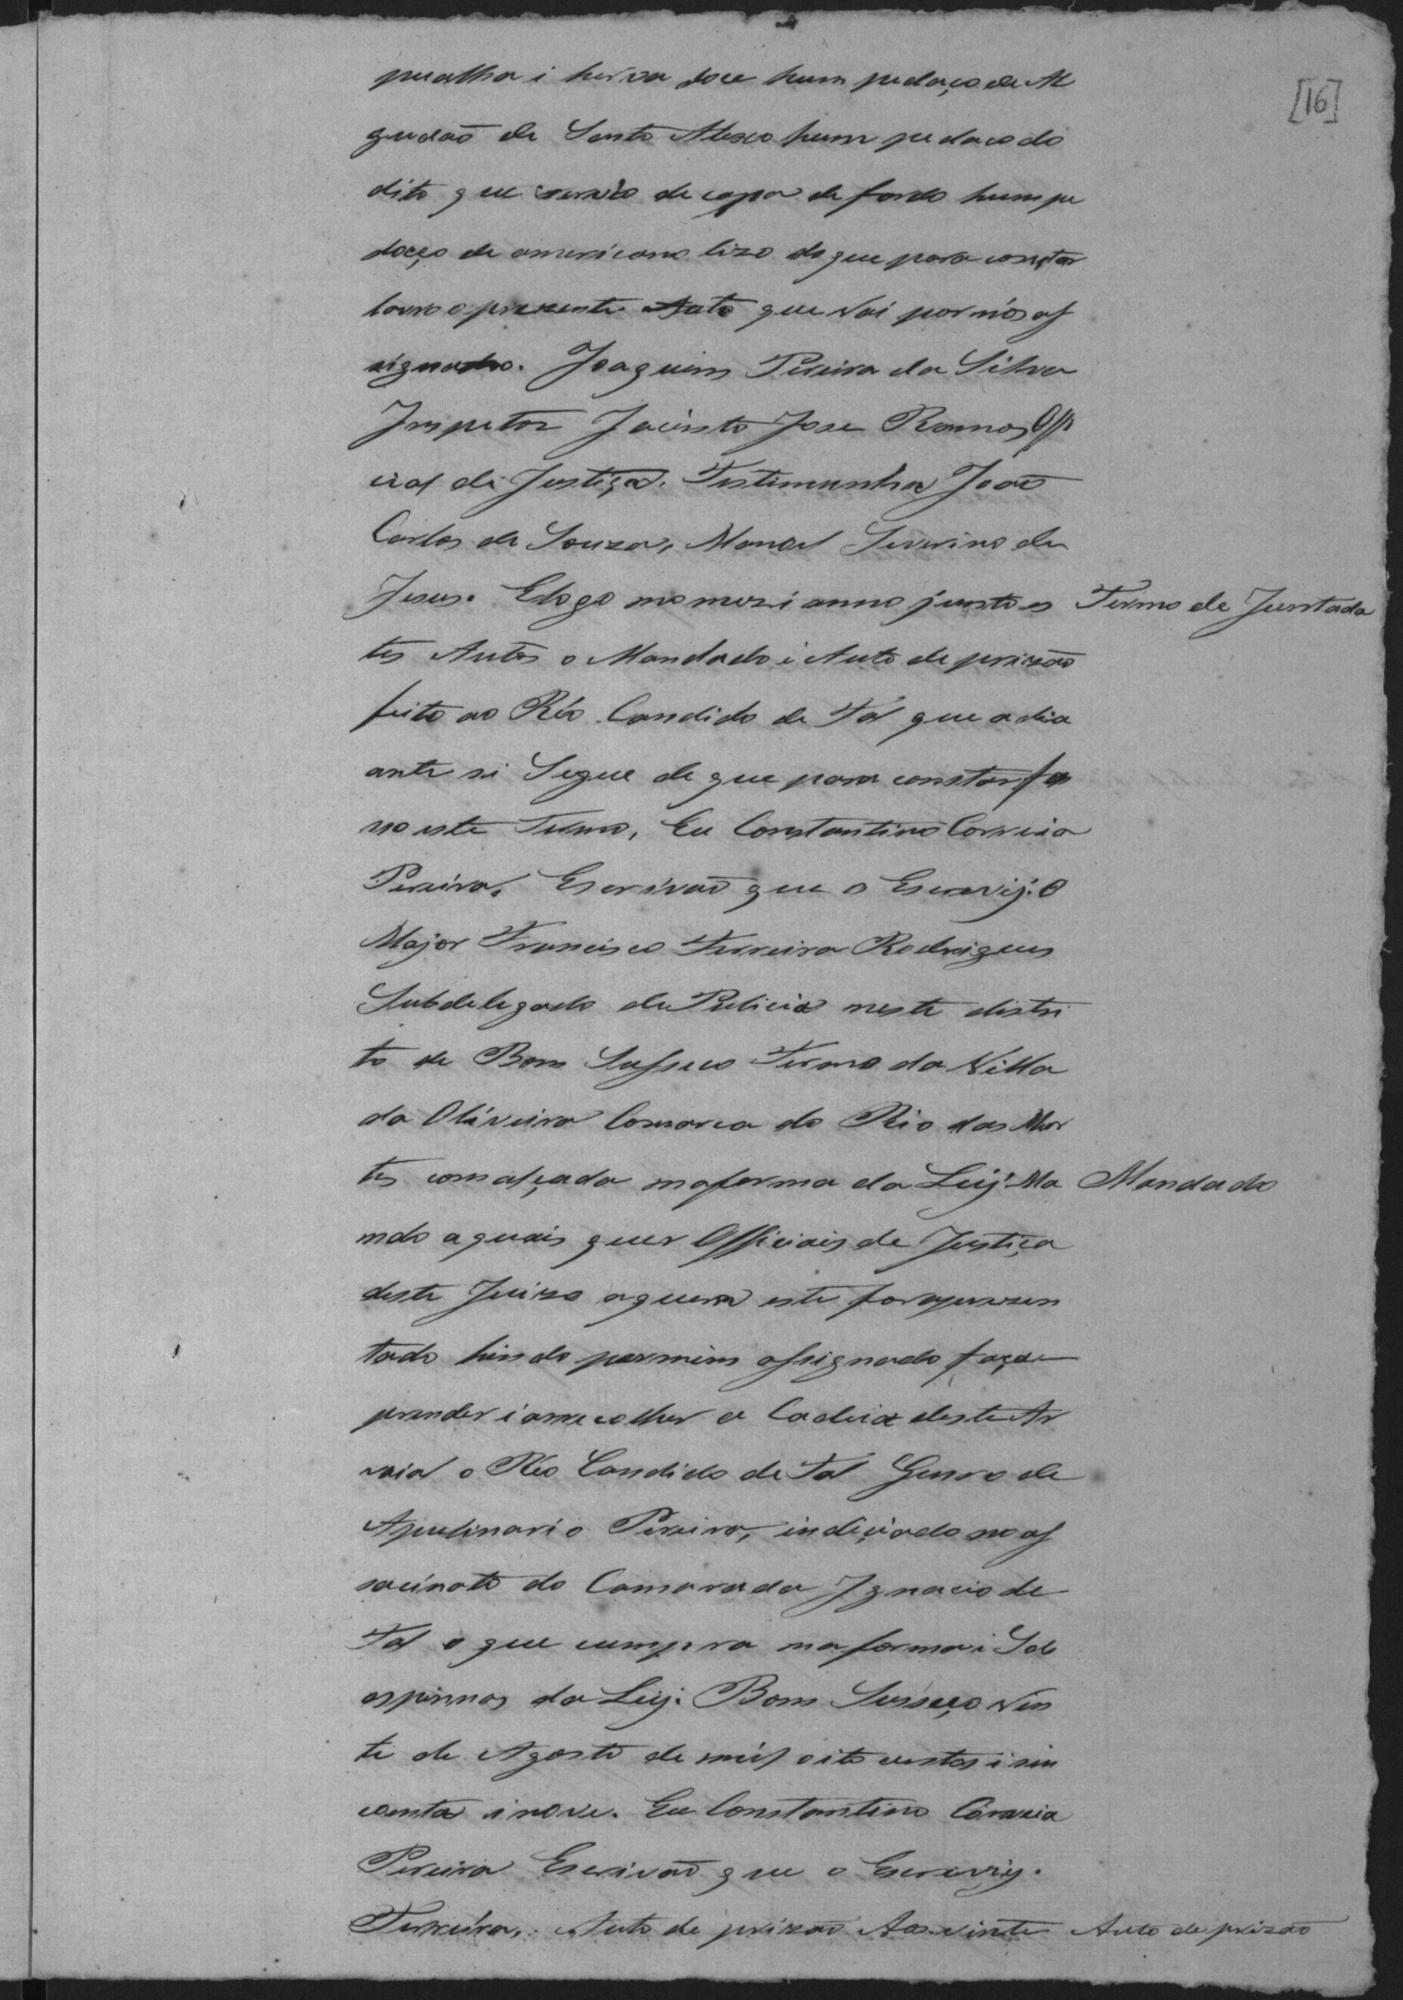 [16]
pualha i herva doce hum pedaço de Al
gudaõ de Santo Aleixo hum pedaco do
dito que servio de capa de fardo hum pe
daço de americano lizo do que para constar
lavro o prezente Auto que vai por nós as
signado. Joaquim Pereira da Silva
Inspetor Jacinto Jose Ramos Offi
cial de Justiça. Testimunha Joaõ
Carlos de Souza, Manoel Severino de
Jesus. E logo no mezmi anno junto es
Termo de Juntada
tes Autos o Mandado i Auto de prizaõ
feito ao Réo Candido de Tal que a dia
ante si Segue de que para constar fa
ço este Termo, Eu Constantino Correia
Pereira, Escrivaõ que o Escrevij. O
Major Francisco Ferreira Rodrigues
Subdelegado de Policia neste distri
to de Bom Susseco Termo da Villa
da Oliveira Comarca do Rio das Mor
tes com alçada na forma da Leij. Ma
Mandado
ndo a quais quer Officiais de Justiça
deste Juizo a quem este for aprezen
tado hindo por mim assignado façaõ
prender i a recolher a Cadeia deste Ar
raial o Réo Candido de Tal Genro de
Apulinario Pereira, indiçiado no as
sacinato do Camarada Ignacio de
Tal o que cumpra na forma i Sob
as pennas da Leij. Bom Susseço Vin
te de Agosto de mil oito centos i sin
coenta i nove. Eu Constantino Correia
Pereira Escrivaõ que o Escrevij.
Ferreira, Auto de prizaõ Aos vinte
Auto de prizaõ